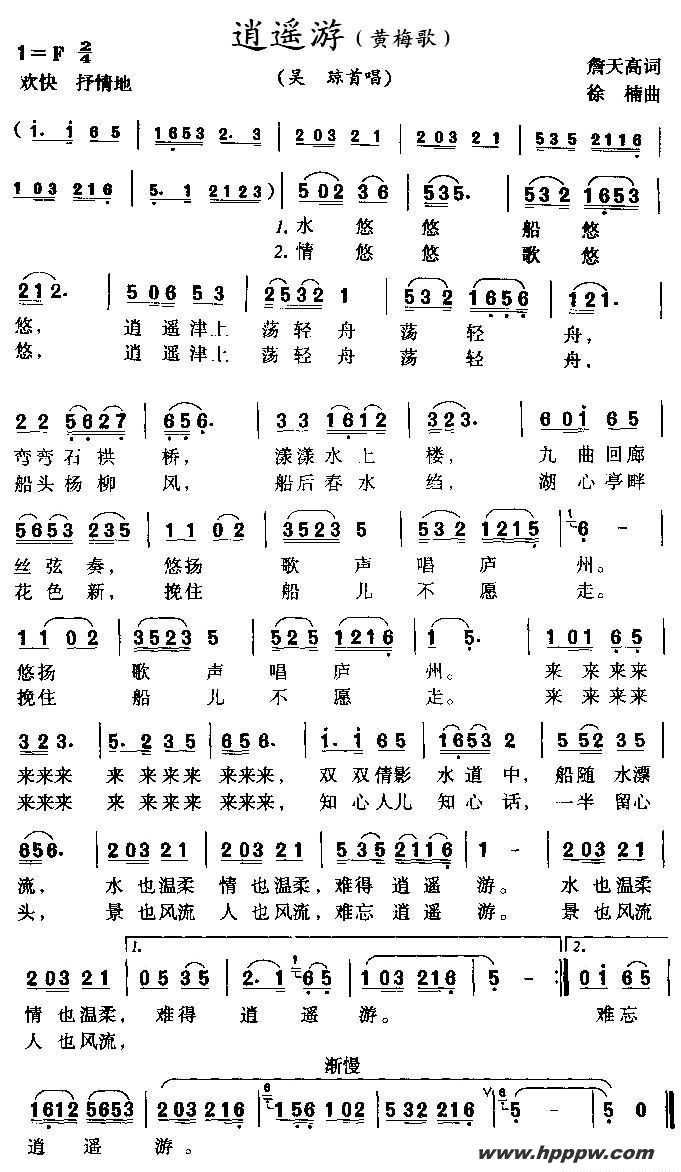 逍遥游（黄梅歌）
1=F 2/4
欢快 抒情地
（吴 琼首唱）
詹天高词
徐 楠曲
（i. i 6 5 | 1653 2. 3 | 2 03 2 1 | 2 03 2 1 | 535 2116 |
1 03 216 | 5. 1 2123）| 502 36 | 535. | 532 1653 |
1.水 悠 悠 船 悠
2.情 悠 悠 歌 悠
212. | 506 53 | 2532 1 | 532 1656 | 121. |
悠， 逍 遥 津上 荡轻舟 荡 轻 舟，
悠， 逍 遥 津上 荡轻舟 荡 轻 舟，
2 2 5627 | 656. | 3 3 1612 | 323. | 60i 65 |
弯弯石拱 桥， 漾漾水上 楼， 九 曲回廊
船头杨柳 风， 船后春水 绉， 湖 心亭畔
5653 235 | 11 02 | 3523 5 | 532 1215 | 6 - |
丝弦奏， 悠扬 歌 声 唱庐 州。
花色新， 挽住 船 儿 不愿 走。
11 02 | 3523 5 | 525 1216 | 1 5. | 101 65 |
悠扬 歌 声 唱庐 州。 来 来来来
挽住 船 儿 不愿 走。 来 来来来
323. | 5. 2 35 | 656. | i. i 65 | 1653 2 | 5 52 35 |
来来来 来 来来来 来来来， 双 双倩影 水道中， 船随 水漂
来来来 来 来来来 来来来， 知 心人儿 知心话， 一半 留心
656. | 203 21 | 203 21 | 535 2116 | 1 - | 203 21 |
流， 水也温柔 情也温柔，难得 逍遥 游。 水也温柔
头， 景也风流 人也风流，难忘 逍遥 游。 景也风流
1.
2.
203 21 | 05 35 | 2. 1 65 | 103 216 | 5 - :‖ 0i 65 |
情也温柔， 难得 逍 遥 游。 难忘
人也风流，
渐慢
1612 5653 | 203 216 | 156 102 | 532 216 | 5 - | 5 0 ‖
逍 遥 游。
www.hpppw.com